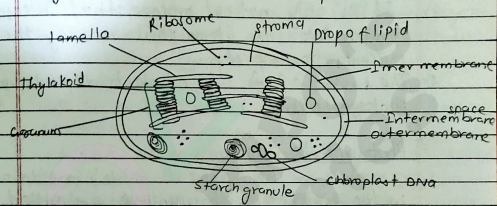 Ribosome
stroma
lamella
Drop of lipid
Inner membrane
Thylakoid
space
Intermembrane
outermembrane
Granum
Starch granule
chloroplast DNA